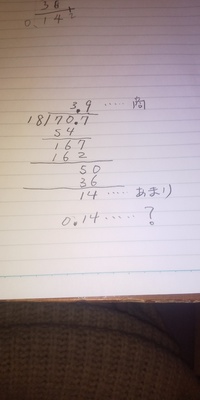 36
0.142
3.9 ..... 商
18/70.7
54
167
162
50
36
14 ..... あまり
0.14 ..... ?